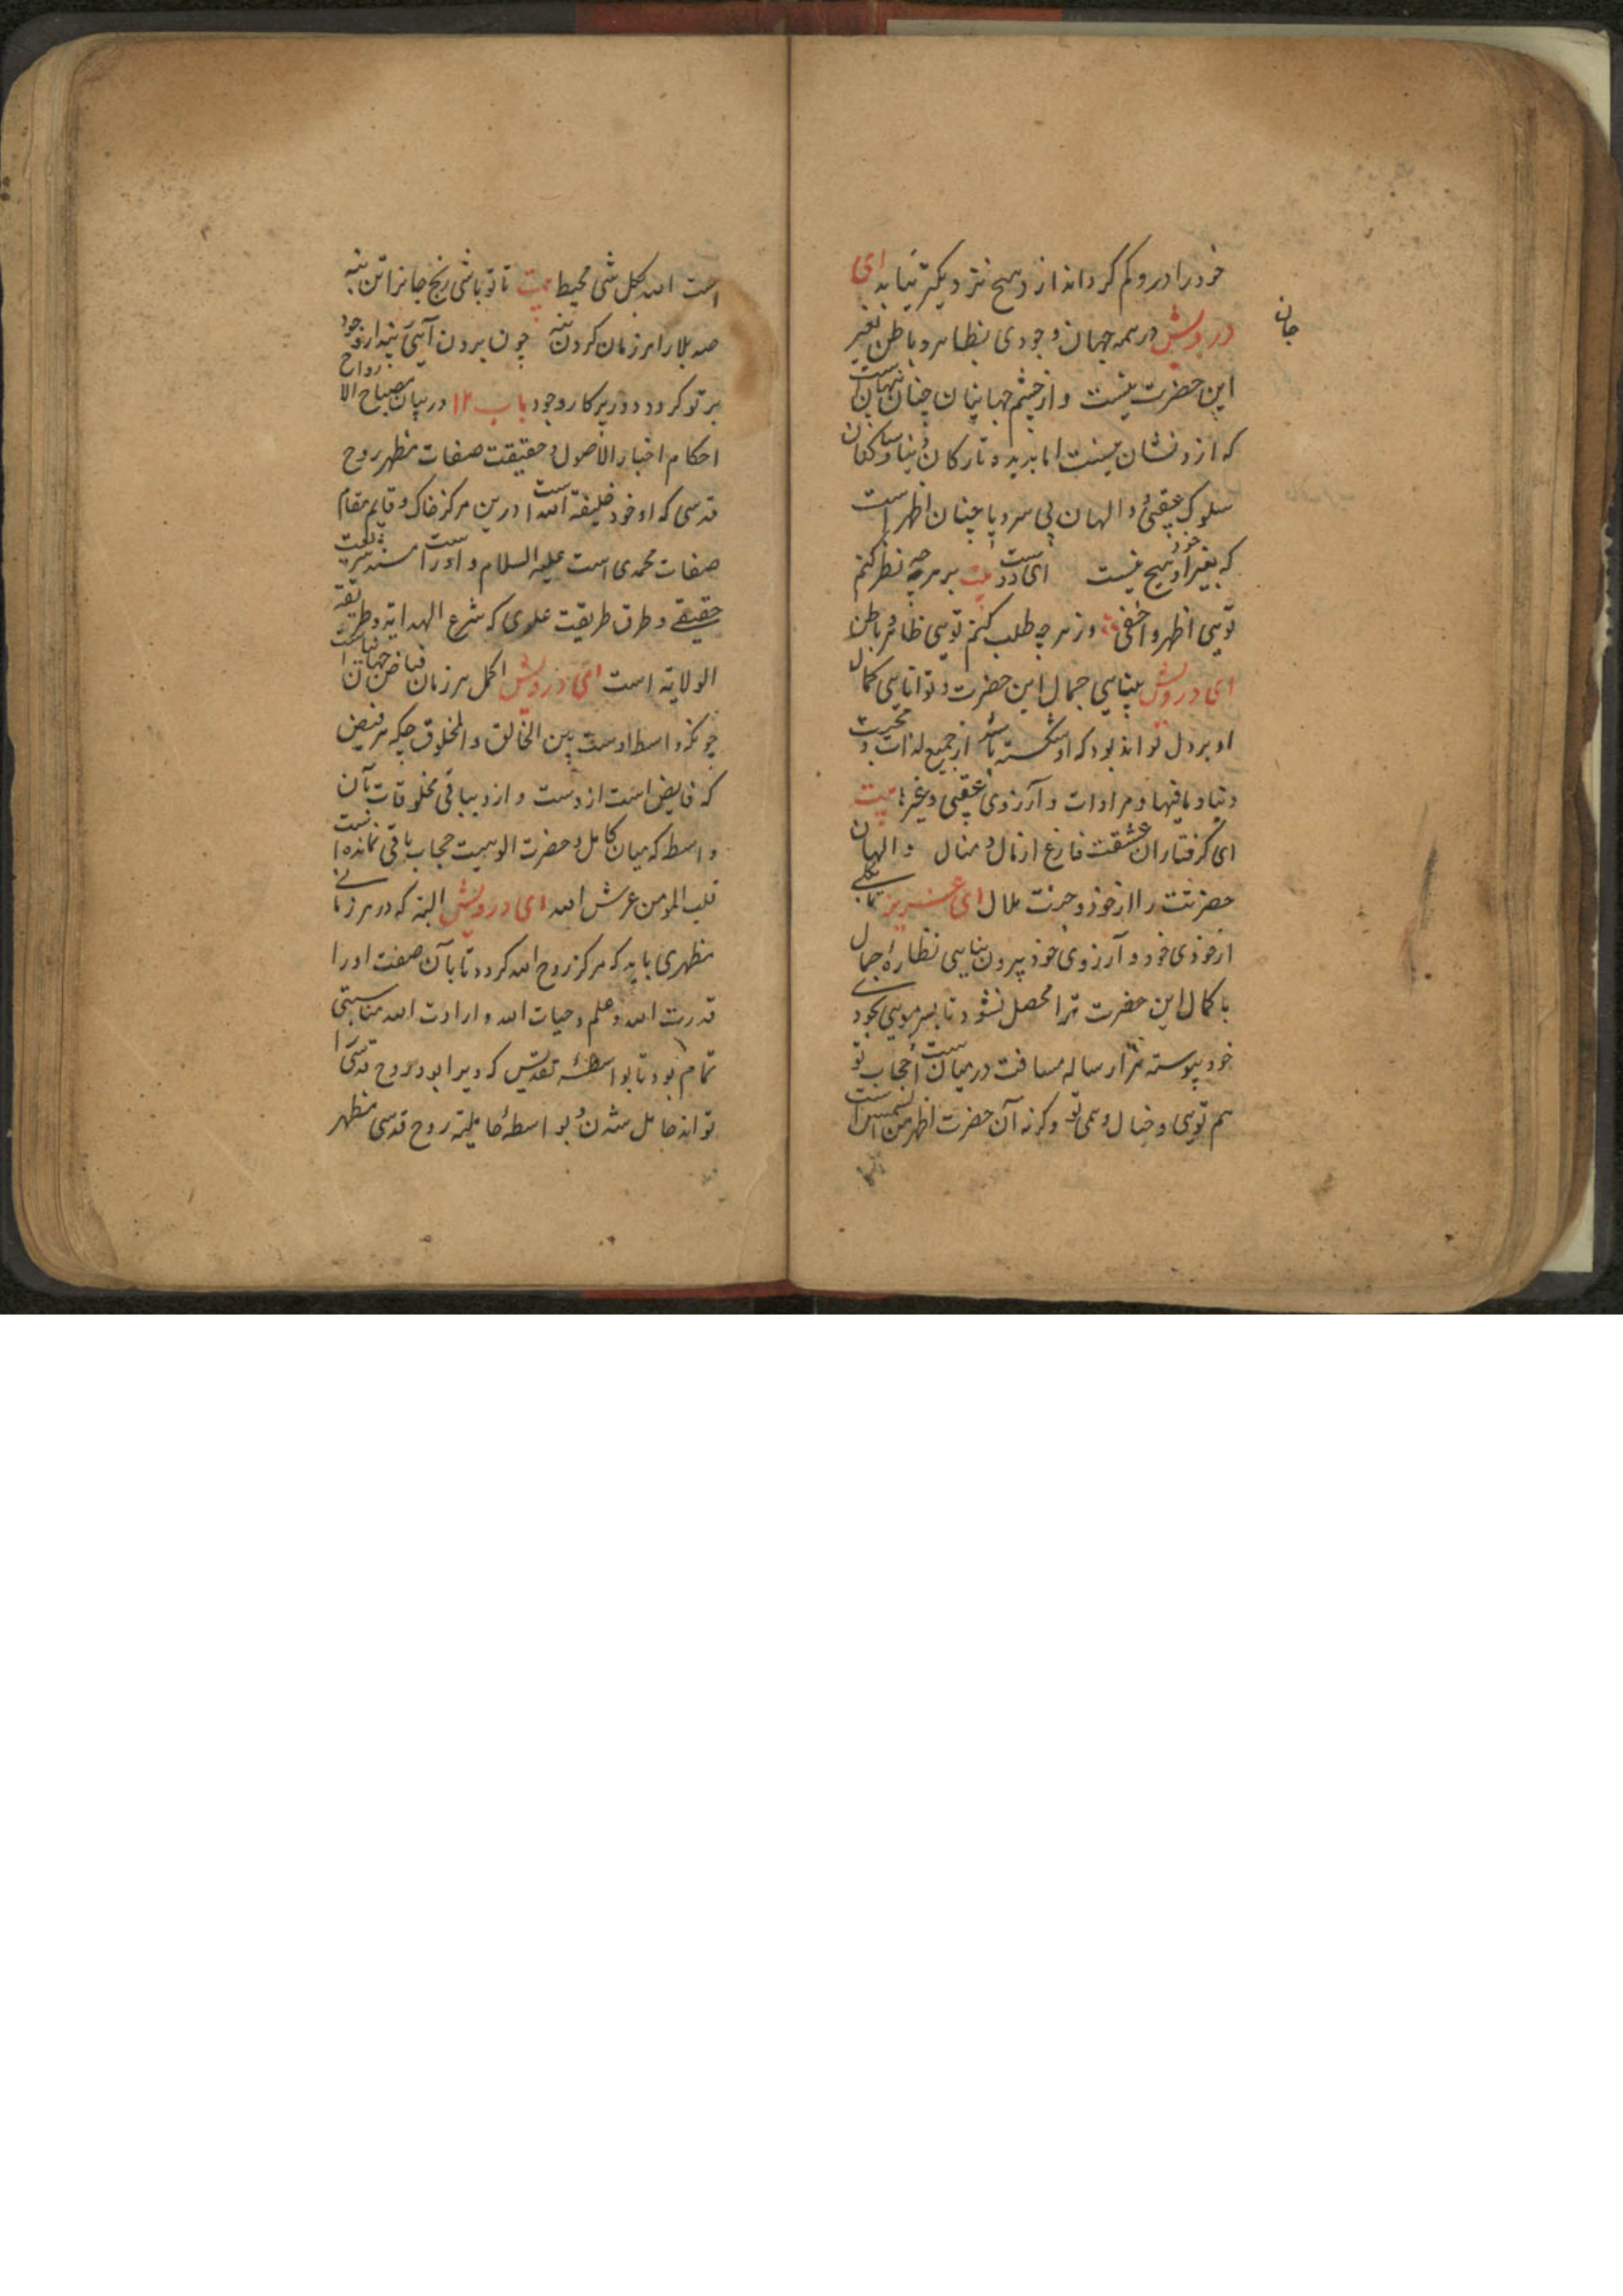 خود را درو کم کرداند از وهیچ نزدیکتر نیابد ای
جان
درویش در همه جهان وجودی بظاهر و باطن بغیر
این حضرت نیست و از چشم جهانیان چنان پنهانست
که ازو نشان نیست اما بدیده تارکان دنیا و سالکان
سلوک عقبی و الهان بی سر و پا چنان اظهر است
که بغیر او خود هیچ نیست ای دوست بیت بر هرچه نظر کنم
تویی اظهر و اخفی وز هرچه طلب کنم تویی ظاهر و باطن
ای درویش بینایی جمال این حضرت و توانایی کمال
او بر دل تواند بود که او شکسته باشد از جمیع لذات و محبت
دنیا و مافیها و مرادات و آرزوی عقبی و غیرها بیت
ای گرفتاران عشقت فارغ از مال و منال والهان
حضرتت را از خود و جنت ملال ای عزیز تا بکلی
از خودی خود و آرزوی خود بیرون نیایی نظاره جمال
با کمال این حضرت ترا محصل نشود تا بسر مویی بخودی
خود پیوسته هزار ساله مسافت در میان است حجاب تو
هم تویی و خیال وهمی تو وگرنه آن حضرت اظهر من الشمس است
است الله بکل شی محیط بیت تا تو باشی رنج جانرا تن بنه
صد بلا را هر زمان گردن بنه چون برون آیی ز پندار وجود
بر تو گردد دور پرکار وجود باب ۱۲ در بیان مصباح الارواح
احکام اخبار الاصول و حقیقت صفات مظهر روح
قدسی که او خود خلیفة الله است درین مرکز خاک و قایم مقام
صفات محمدی است علیه السلام و او را است مسند شریعت
حقیقی و طرق طریقت علوی که شرع الهدایه و طریقة
الولایة است ای درویش اکمل هر زمان فیاض جهانیان است
چونکه واسط اوست بین الخالق و المخلوق چه که هر فیض
که فایض است ازوست و ازو بباقی مخلوقات بآن
واسط که میان کامل و حضرت الوهیت حجاب باقی نمانده است
قلب المومن عرش الله ای درویش البته که در هر زمانی
مظهری باید که مرکز روح الله گردد تا بآن صفت او را
قدرت الله و علم و حیات الله و ارادت الله مناسبتی
تمام بود تا بواسطهٔ تقدیس که ویرا بود روح قدسی را
تواند حامل شدن و بواسطهٔ حاملیة روح قدسی مظهر